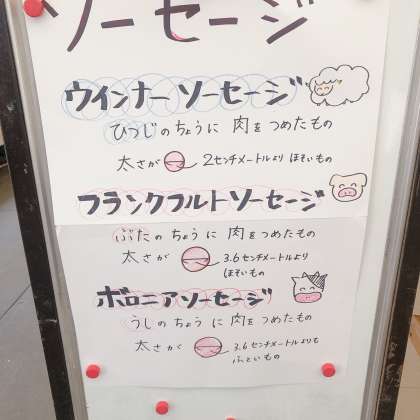 ソーセージ
ウインナーソーセージ
ひつじのちょうに肉をつめたもの
太さが 2センチメートルよりほそいもの
フランクフルトソーセージ
ぶたのちょうに肉をつめたもの
太さが 3.6センチメートルより
ほそいもの
ボロニアソーセージ
うしのちょうに肉をつめたもの
太さが 3.6センチメートルよりも
ふといもの